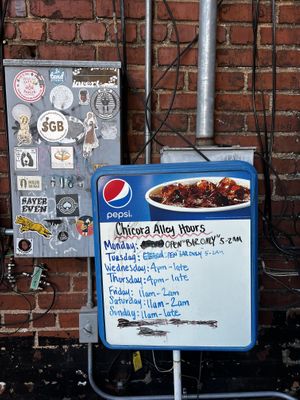 invert
SGB
SAYER
EVEN
pepsi
Chicora Alley Hours
Monday: OPEN "BAR ONLY" 5-2AM
Tuesday: OPEN BAR ONLY 5-2AM
Wednesday: 4pm-late
Thursday: 4pm-late
Friday: 11am-2am
Saturday: 11am-2am
Sunday: 11am-late